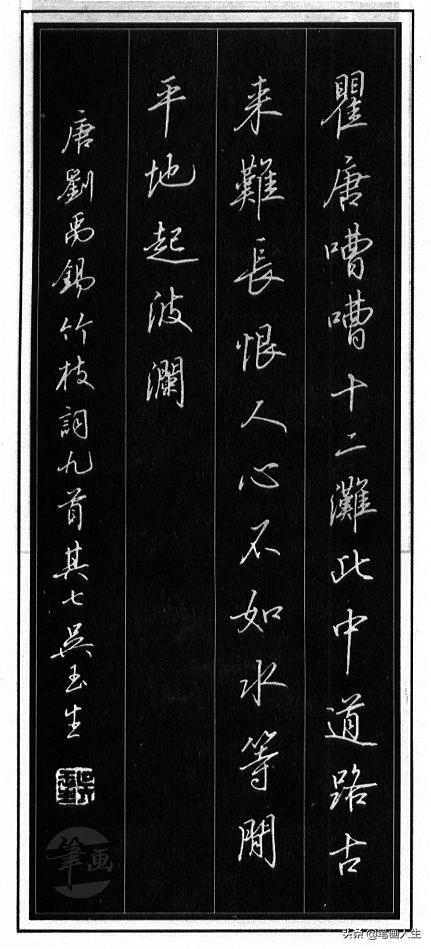 瞿唐嘈嘈十二灘此中道路古
来難長恨人心不如水等閒
平地起波瀾
唐劉禹錫竹枝詞九首其七吳玉生
筆画
头条@笔画人生